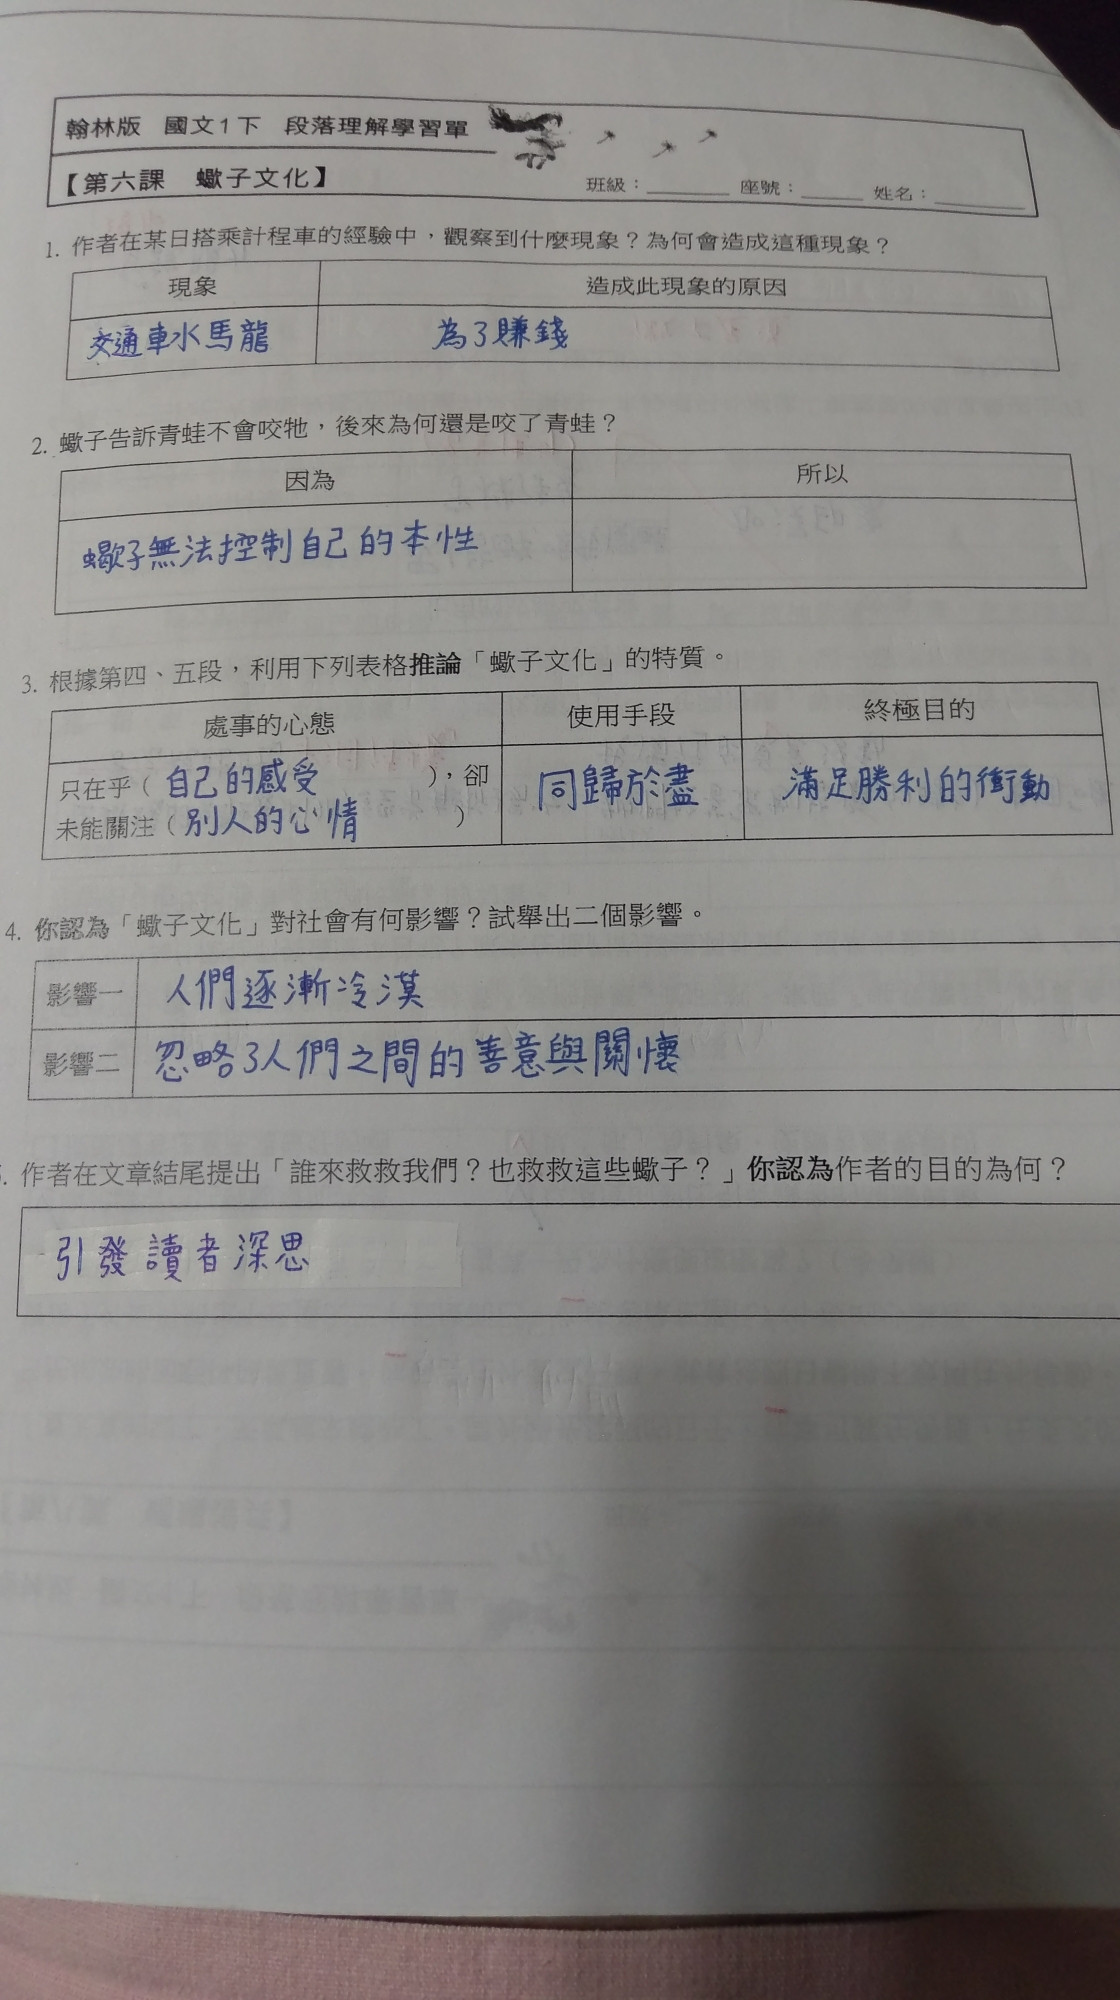 翰林版 國文1下 段落理解學習單
【第六課 蠍子文化】 班級：＿＿＿ 座號：＿＿＿ 姓名：＿＿＿
1. 作者在某日搭乘計程車的經驗中，觀察到什麼現象？為何會造成這種現象？
現象 造成此現象的原因
交通車水馬龍 為了賺錢
2. 蠍子告訴青蛙不會咬牠，後來為何還是咬了青蛙？
因為 所以
蠍子無法控制自己的本性
3. 根據第四、五段，利用下列表格推論「蠍子文化」的特質。
處事的心態 使用手段 終極目的
只在乎（自己的感受），卻 同歸於盡 滿足勝利的衝動
未能關注（別人的心情）
4. 你認為「蠍子文化」對社會有何影響？試舉出二個影響。
影響一 人們逐漸冷漠
影響二 忽略了人們之間的善意與關懷
. 作者在文章結尾提出「誰來救救我們？也救救這些蠍子？」你認為作者的目的為何？
引發讀者深思